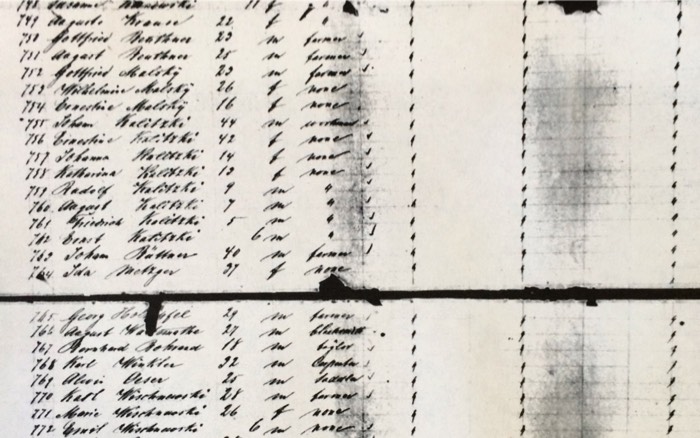 749 Auguste Krause 22 f "
750 Gottfried 23 m farmer
751 August 25 m farmer
752 Gottfried Malsky 23 m farmer
753 Wilhelmine Malsky 26 f none
754 Ernestine Malsky 16 f none
755 Johann Kalitzki 44 m workman
756 Ernestine Kalitzki 42 f none
757 Johanna Kalitzki 14 f none
758 Katharina Kalitzki 13 f none
759 Rudolf Kalitzki 9 m "
760 August Kalitzki 7 m "
761 Friedrich Kalitzki 5 m "
762 Ernst Kalitzki 6 m "
763 Johann Büttner 40 m farmer
764 Ida Metzger 37 f none
765 Georg 29 m farmer
766 August 27 m
767 Bernhard 18 m
768 Karl Winkler 32 m
769 25 m Saddler
770 Karl Wischnewski 28 m farmer
771 Marie Wischnewski 26 f none
772 Ernst Wischnewski 6 m none